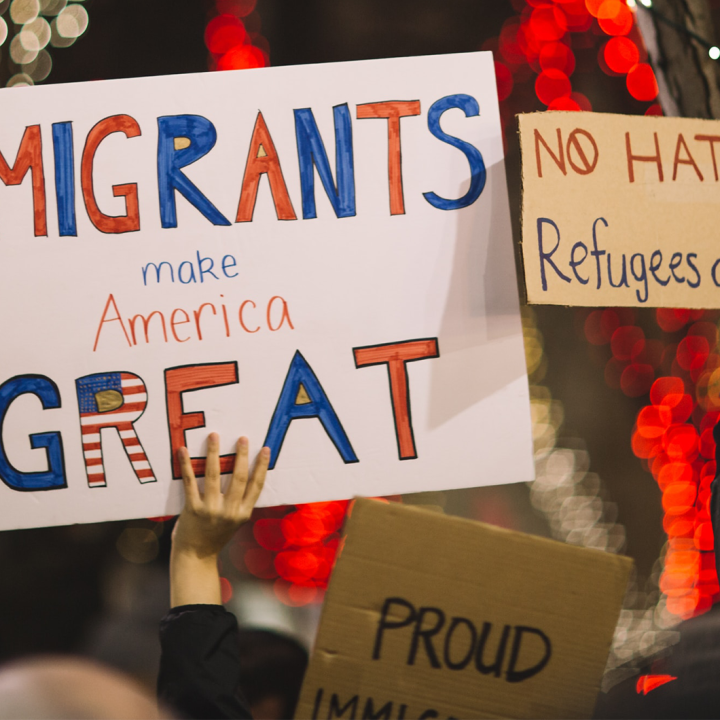 MIGRANTS
make
America
GREAT
NO HAT
Refugees
PROUD
IMMIG